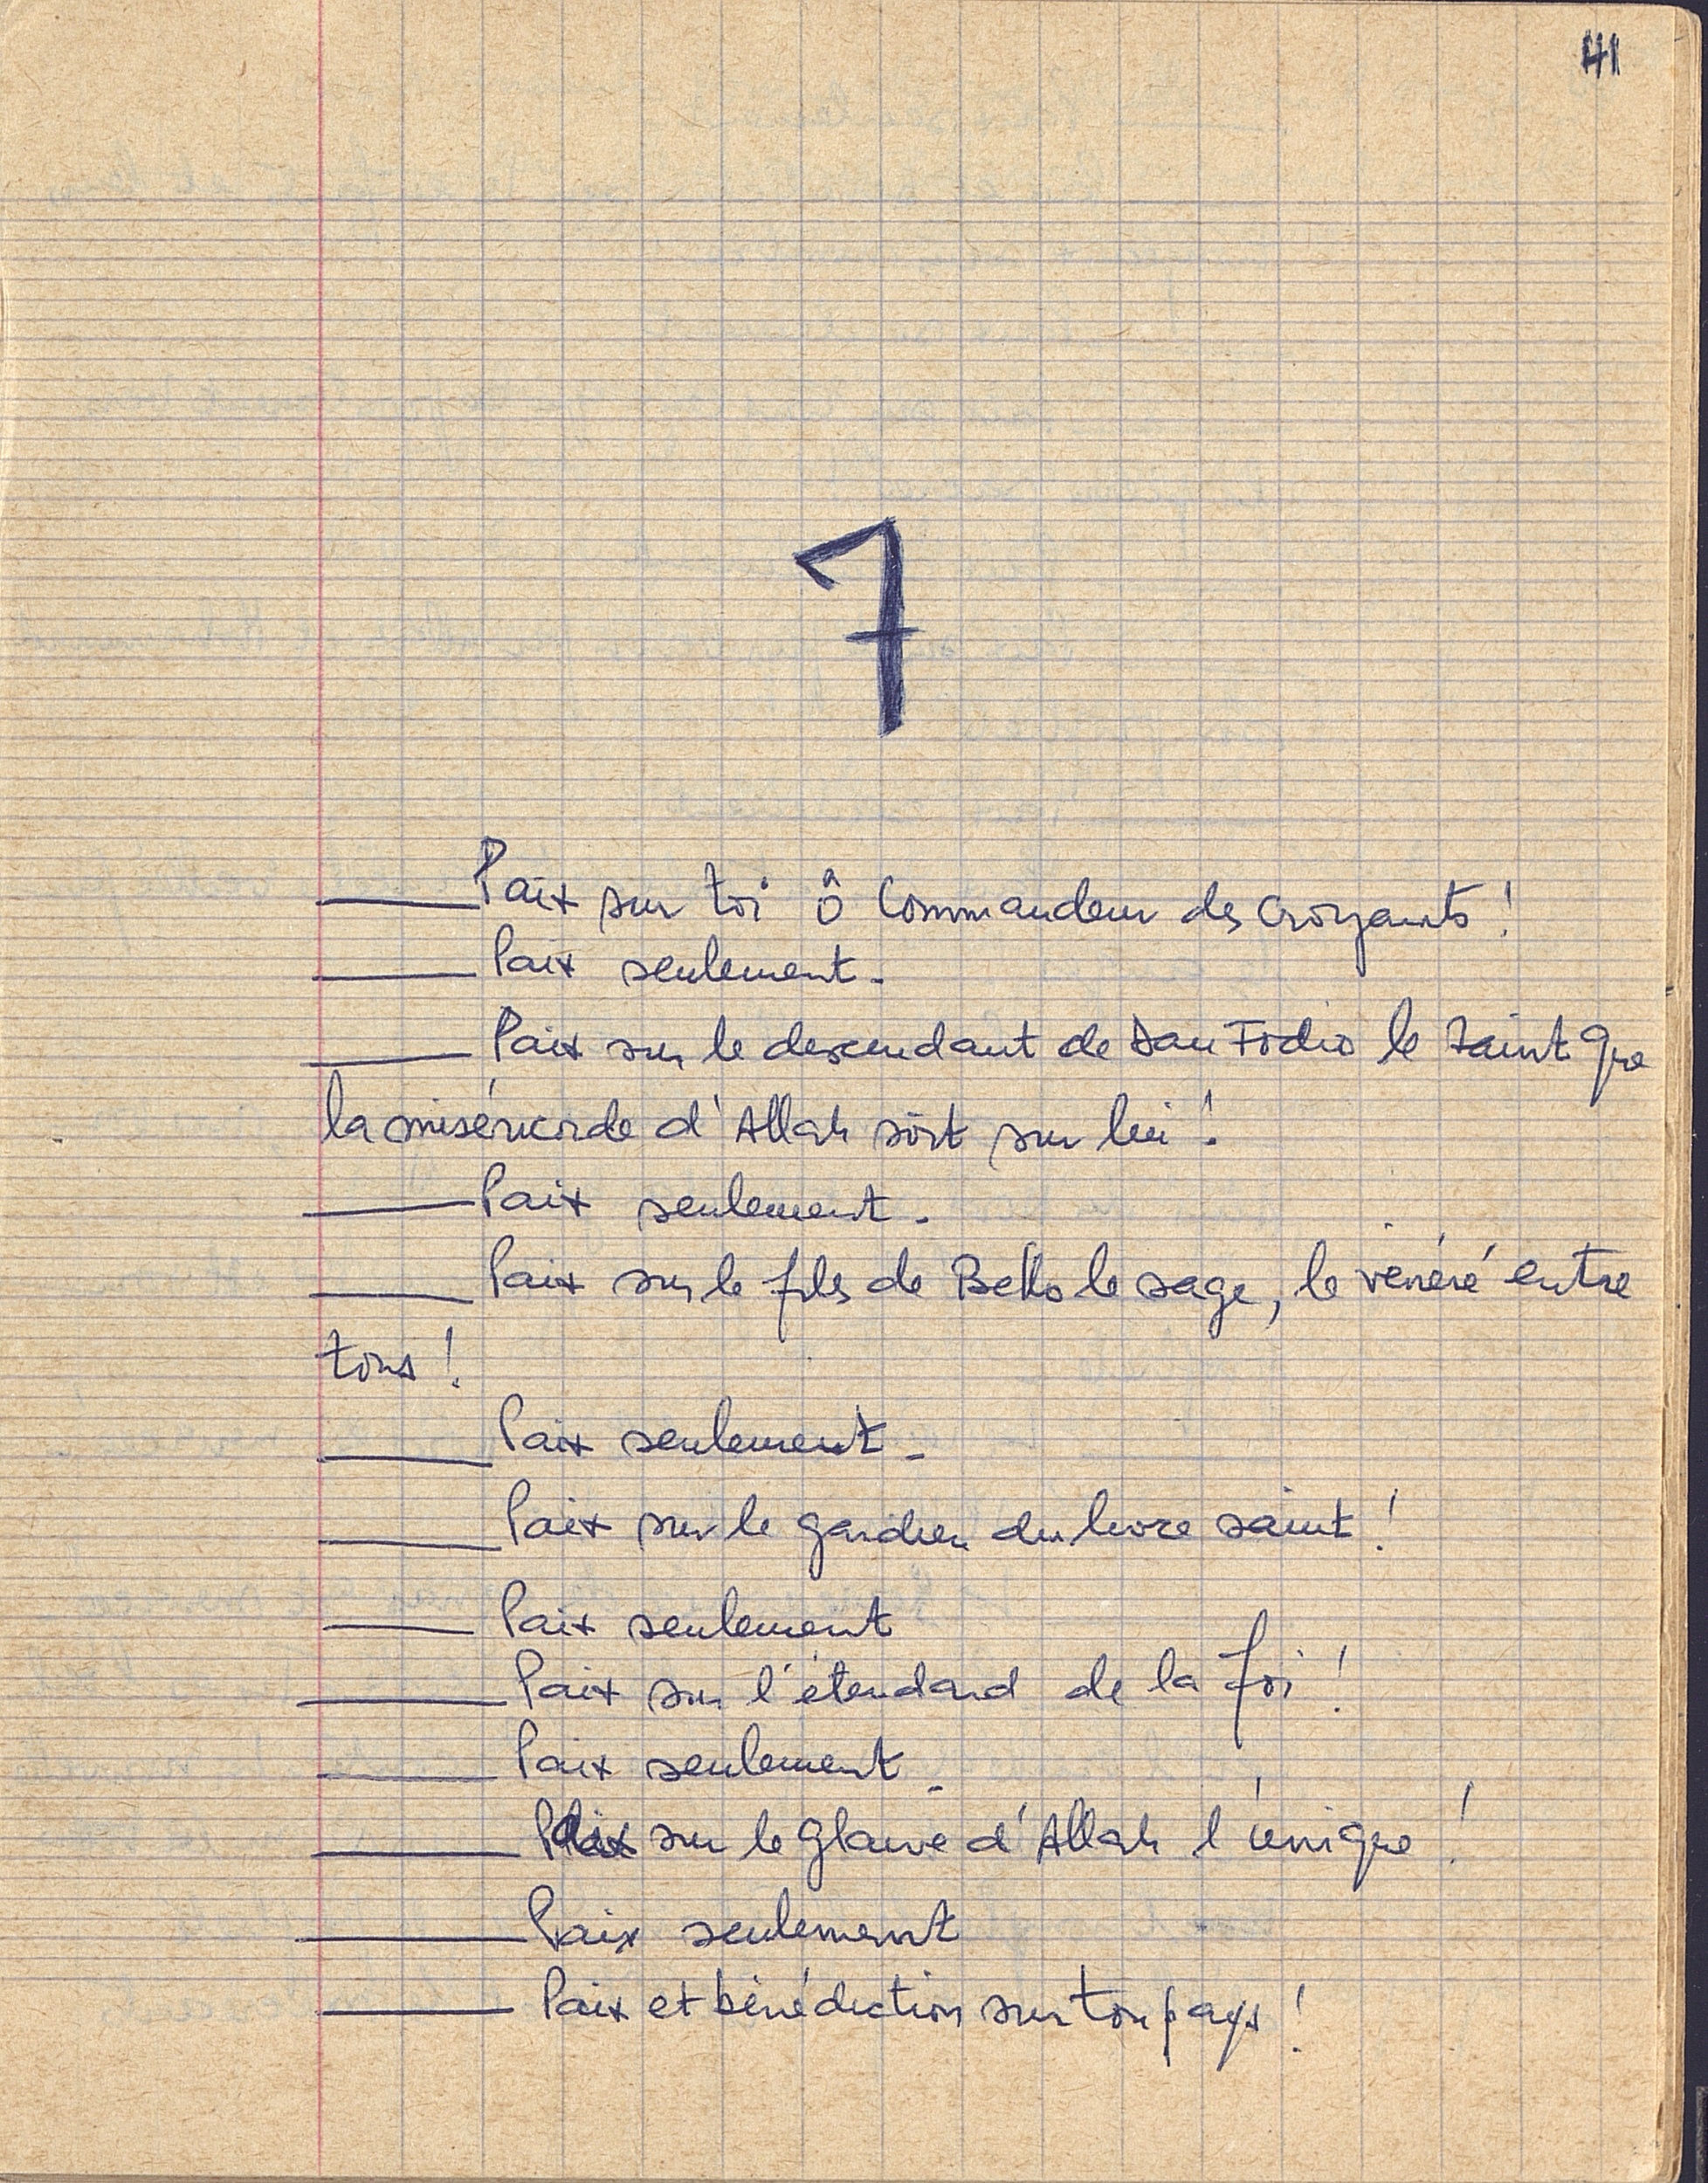 41
7
— Paix sur toi ô Commandeur des Croyants !
— Paix seulement.
— Paix sur le descendant de Dan Fodio le Saint que
la miséricorde d'Allah soit sur lui !
— Paix seulement.
— Paix sur le fils de Bello le sage, le vénéré entre
tous !
— Paix seulement.
— Paix sur le gardien du livre saint !
— Paix seulement
— Paix sur l'étendard de la foi !
— Paix seulement.
— Paix sur le glaive d'Allah l'unique !
— Paix seulement
— Paix et bénédiction sur ton pays !